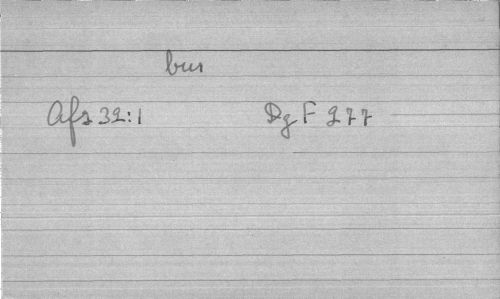 bur
Afz 32:1 DgF 277